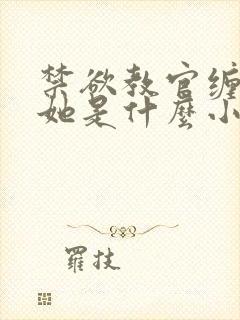 禁欲教官缠
她是什麼小
羅技